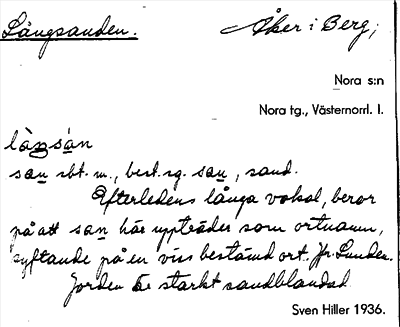 Långsanden. Åker i Berg;
Nora s:n
Nora tg., Västernorrl. l.
làŋsàn
san sbt. m., best. sg. san, sand.
Efterledens långa vokal, beror
på att san här uppträder som ortnamn,
syftande på en viss bestämd ort. Jfr Sunden.
Jorden är starkt sandblandad.
Sven Hiller 1936.